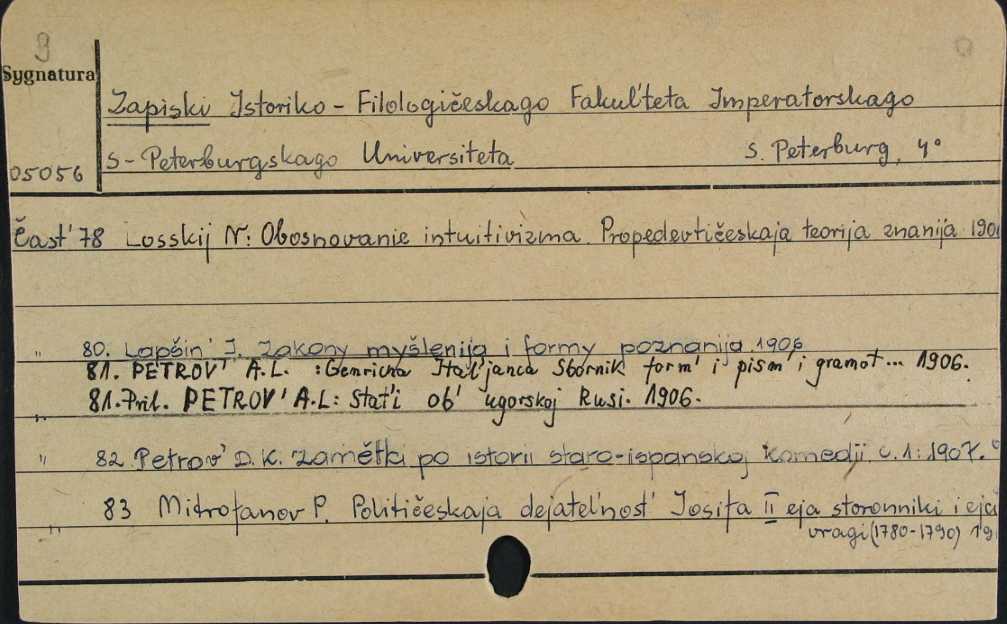 9
Sygnatura
Zapiski Istoriko - Filologičeskago Fakul'teta Imperatorskago
05056 s-Peterburgskago Universiteta S. Peterburg, 4°
Čast' 78 Losskij N: Obosnovanie intuitivizma. Propedevtičeskaja teorija znanija 190
" 80. Lapšin' I. Zakony myšlenija i formy poznanija 1906
81. PETROV' A.L. : Genricha Ital'janca Sbornik form' i pism' i gramot... 1906.
" 81. Pril. PETROV' A.L: Stat'i ob' ugorskoj Rusi. 1906.
" 82 Petrov' D.K. Zamětki po istorii staro-ispanskoj komedji. č.1: 1907.
" 83 Mitrofanov P. Političeskaja dejatel'nost' Josifa II eja storonniki i eja
vragi (1780-1790) 19